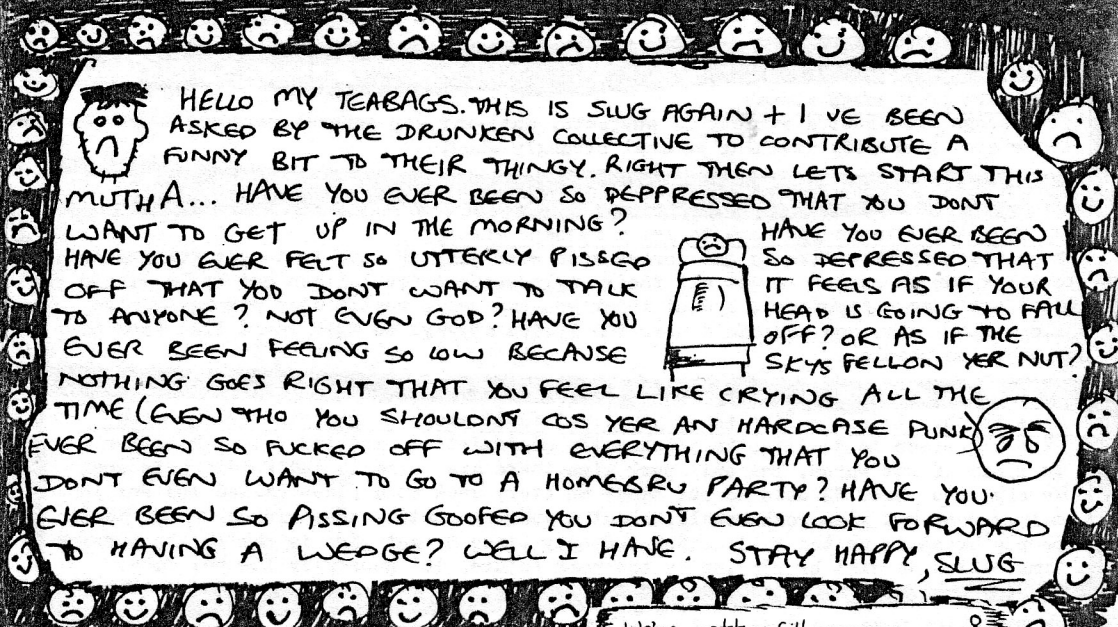 HELLO MY TEABAGS. THIS IS SLUG AGAIN + I VE BEEN
ASKED BY THE DRUNKEN COLLECTIVE TO CONTRIBUTE A
FUNNY BIT TO THEIR THINGY. RIGHT THEN LETS START THIS
MUTHA... HAVE YOU EVER BEEN SO DEPPRESSED THAT YOU DONT
WANT TO GET UP IN THE MORNING?
HAVE YOU EVER FELT SO UTTERLY PISSED
OFF THAT YOU DONT WANT TO TALK
TO ANYONE? NOT EVEN GOD? HAVE YOU
EVER BEEN FEELING SO LOW BECAUSE
HAVE YOU EVER BEEN
SO DEPRESSED THAT
IT FEELS AS IF YOUR
HEAD IS GOING TO FALL
OFF? OR AS IF THE
SKYS FELLON YER NUT?
NOTHING GOES RIGHT THAT YOU FEEL LIKE CRYING ALL THE
TIME (EVEN THO YOU SHOULDNT COS YER AN HARDCASE PUNK)
EVER BEEN SO FUCKED OFF WITH EVERYTHING THAT YOU
DONT EVEN WANT TO GO TO A HOMEBRU PARTY? HAVE YOU
EVER BEEN SO PISSING GOOFED YOU DON'T EVEN LOOK FORWARD
TO HAVING A WEDGE? WELL I HAVE. STAY HAPPY, SLUG